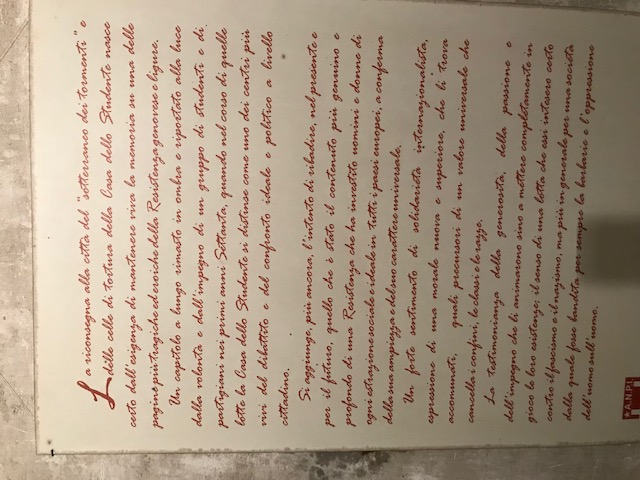 La riconsegna alla città del "sotterraneo dei tormenti" e
delle celle di tortura della Casa dello Studente nasce
certo dall'esigenza di mantenere viva la memoria su una delle
pagine più tragiche ed eroiche della Resistenza genovese e ligure.
Un capitolo a lungo rimasto in ombra e riportato alla luce
dalla volontà e dall'impegno di un gruppo di studenti e di
partigiani nei primi anni Settanta, quando nel corso di quelle
lotte la Casa dello Studente si distinse come uno dei centri più
vivi del dibattito e del confronto ideale e politico a livello
cittadino.
Si aggiunge, più ancora, l'intento di ribadire, nel presente e
per il futuro, quello che è stato il contenuto più genuino e
profondo di una Resistenza che ha investito uomini e donne di
ogni estrazione sociale e ideale in tutti i paesi europei, a conferma
della sua ampiezza e del suo carattere universale.
Un forte sentimento di solidarietà internazionalista,
espressione di una morale nuova e superiore, che li trova
accomunati, quali precursori di un valore universale che
cancella i confini, le classi e le razze.
La testimonianza della generosità, della passione e
dell'impegno che li animarono sino a mettere completamente in
gioco le loro esistenze; il senso di una lotta che essi intesero certo
contro il fascismo e il nazismo, ma più in generale per una società
dalla quale fosse bandita per sempre la barbarie e l'oppressione
dell'uomo sull'uomo.
A.N.P.I.